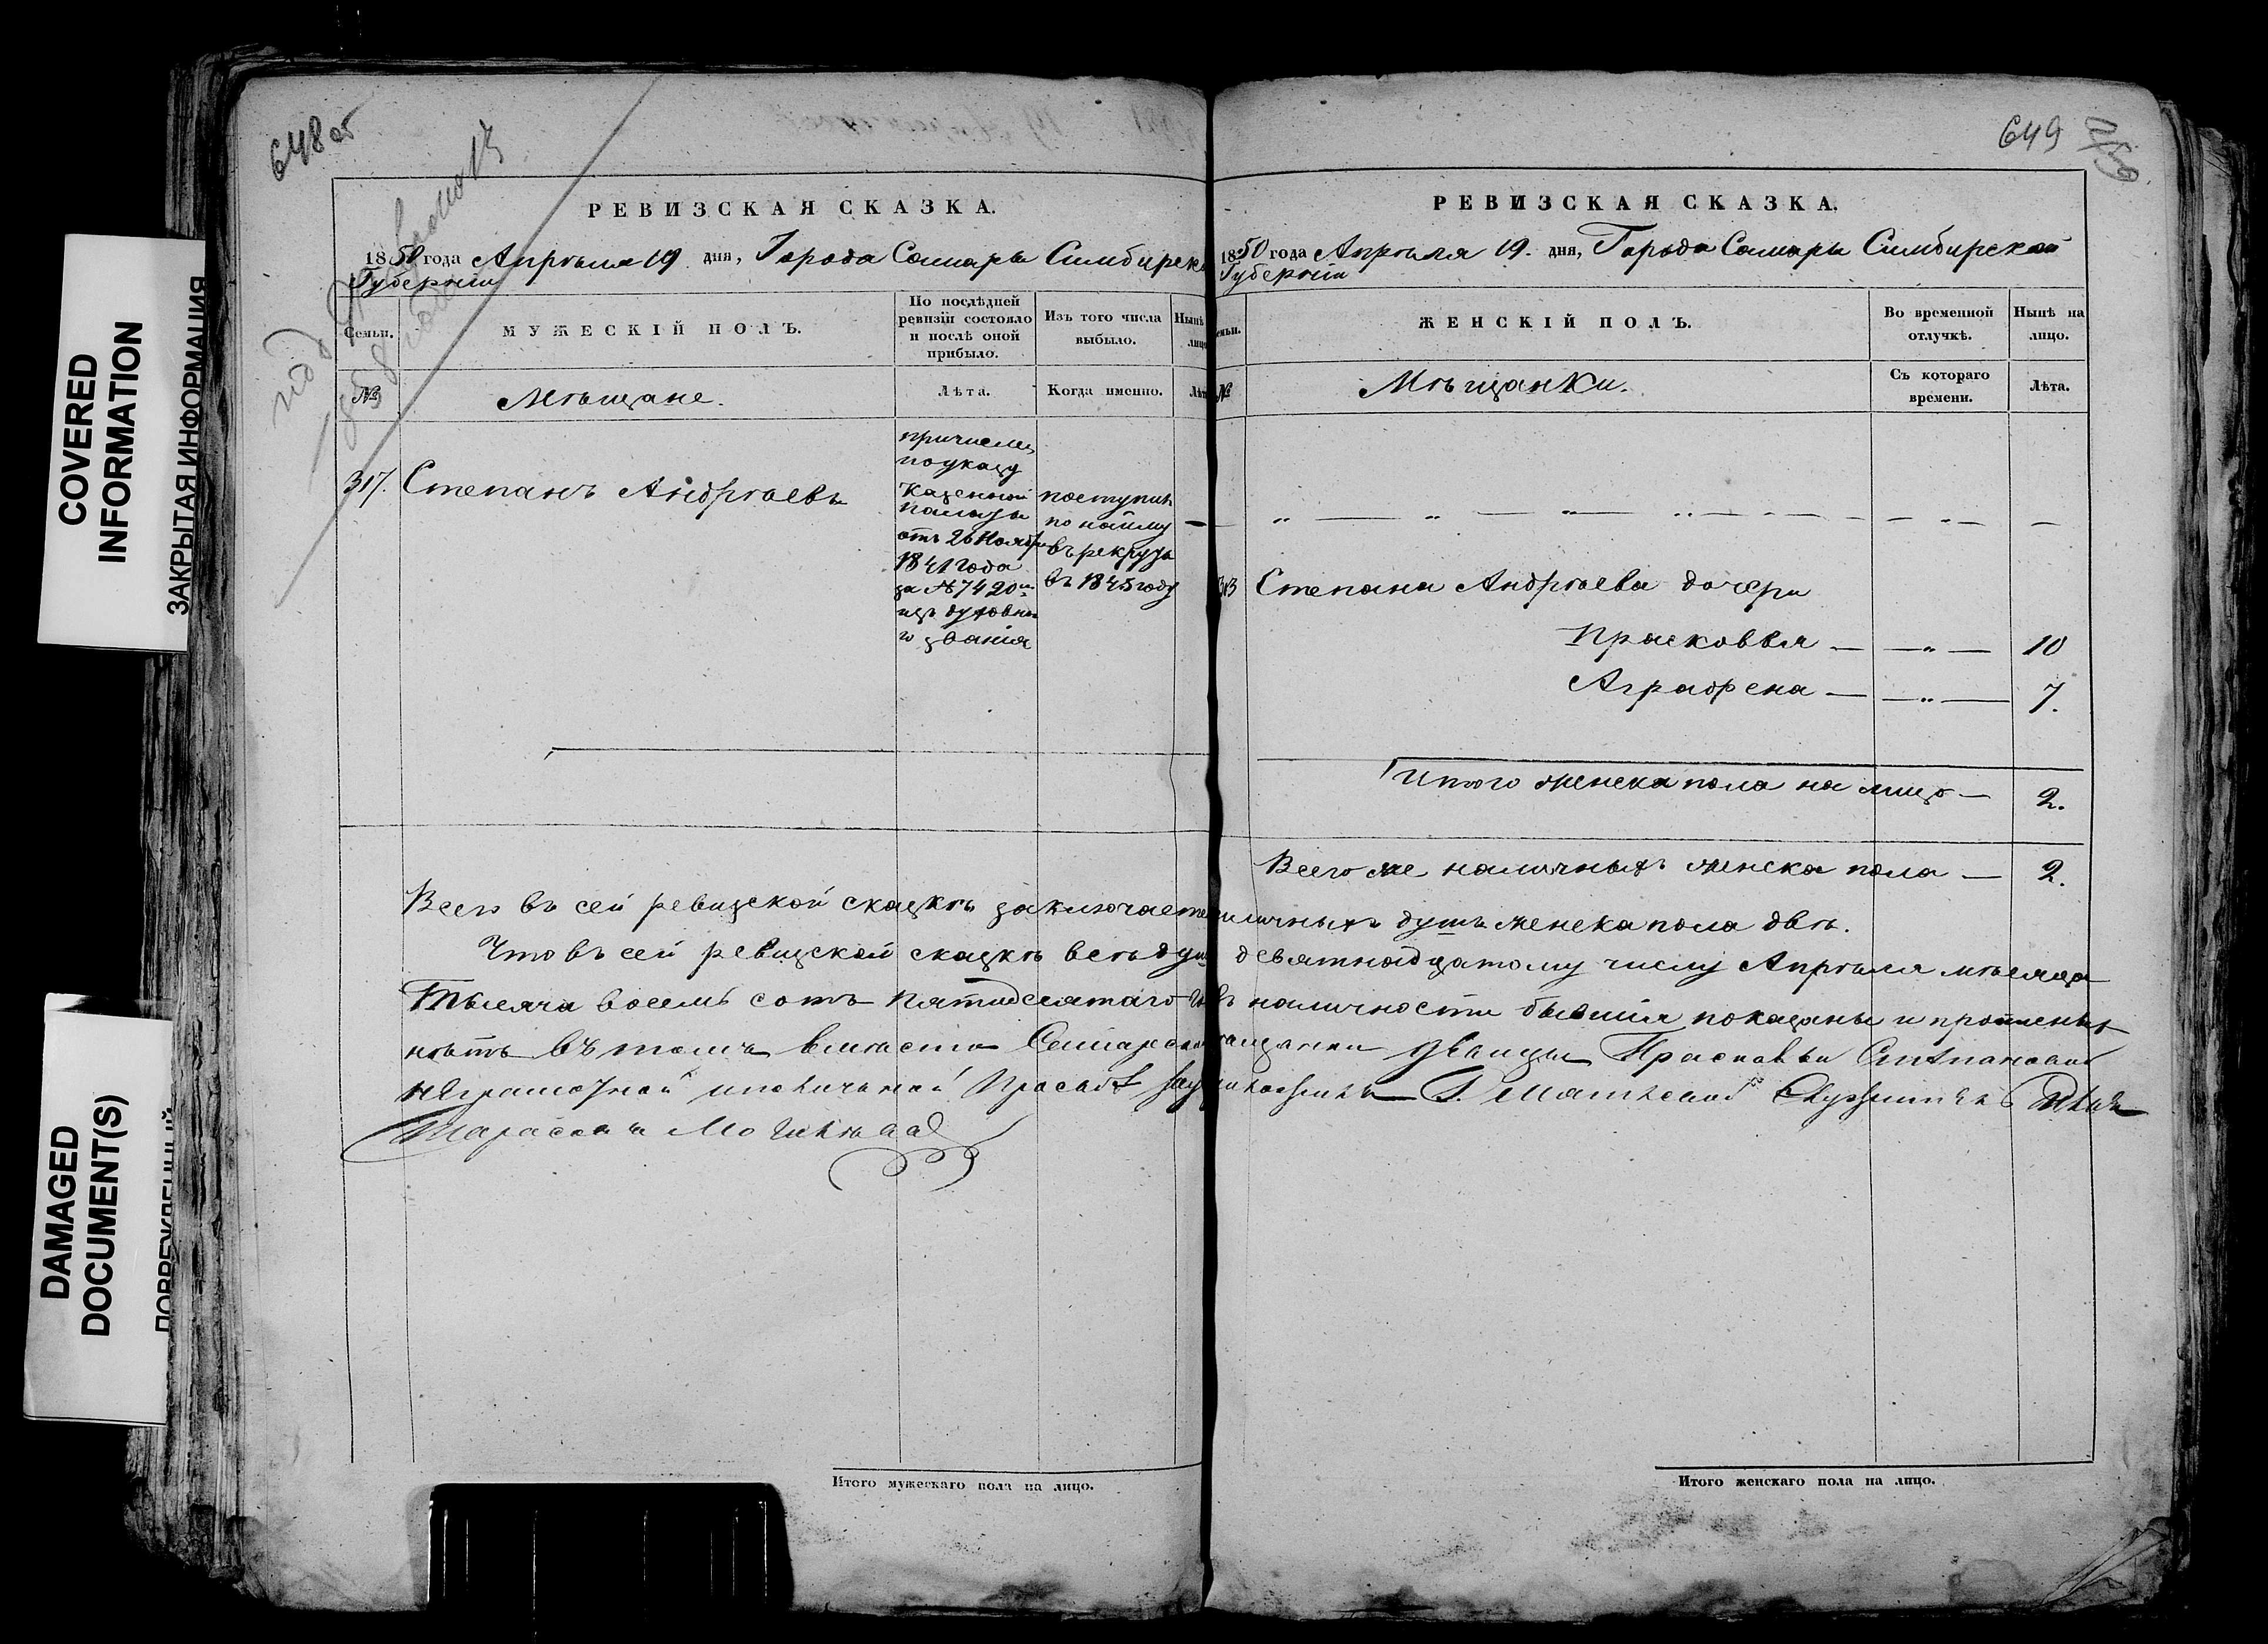 648 об
РЕВИЗСКАЯ СКАЗКА.
1850 года Апрѣля 19 дня, Города Самары Симбирско
Губерніи
Семьи.
МУЖЕСКІЙ ПОЛЪ.
По послѣдней ревизіи состояло и послѣ оной прибыло.
Изъ того числа выбыло.
Нынѣ лицо
№
Мѣщане.
Лѣта.
Когда именно.
Лѣт
317. Степанъ Андрѣевъ
причислен
по указу
Казенной
палаты
отъ 26 Ноября
1841 года
за № 7420м
изъ духовна
го званія
поступилъ
по найму
въ рекруты
въ 1845 году
Всего въ сей ревизской сказкѣ заключаетс
Что въ сей ревизской сказкѣ всѣ душ
Тысяча восемь сотъ пятидесятаго го
нѣтъ въ томъ
Тарасова
Итого мужескаго пола на лицо.
649
РЕВИЗСКАЯ СКАЗКА.
1850 года Апрѣля 19. дня, Города Самары Симбирской
Губерніи
емьи.
ЖЕНСКІЙ ПОЛЪ.
Во временной отлучкѣ.
Нынѣ на лицо.
№
Мѣщанки.
Съ котораго времени.
Лѣта.
Степана Андрѣева дочери
Прасковья — — „ — 10
Аграфена — — „ — 7.
Итого женска пола на лицо — 2.
Всего же наличныхъ женска пола — 2.
личныхъ душъ женска пола двѣ.
девятнадцатому числу Апрѣля мѣсяца
въ наличности бывшія показаны и
дѣвицы Прасковьи
Итого женскаго пола на лицо.
COVERED
INFORMATION
ЗАКРЫТАЯ ИНФОРМАЦИЯ
DAMAGED
DOCUMENT(S)